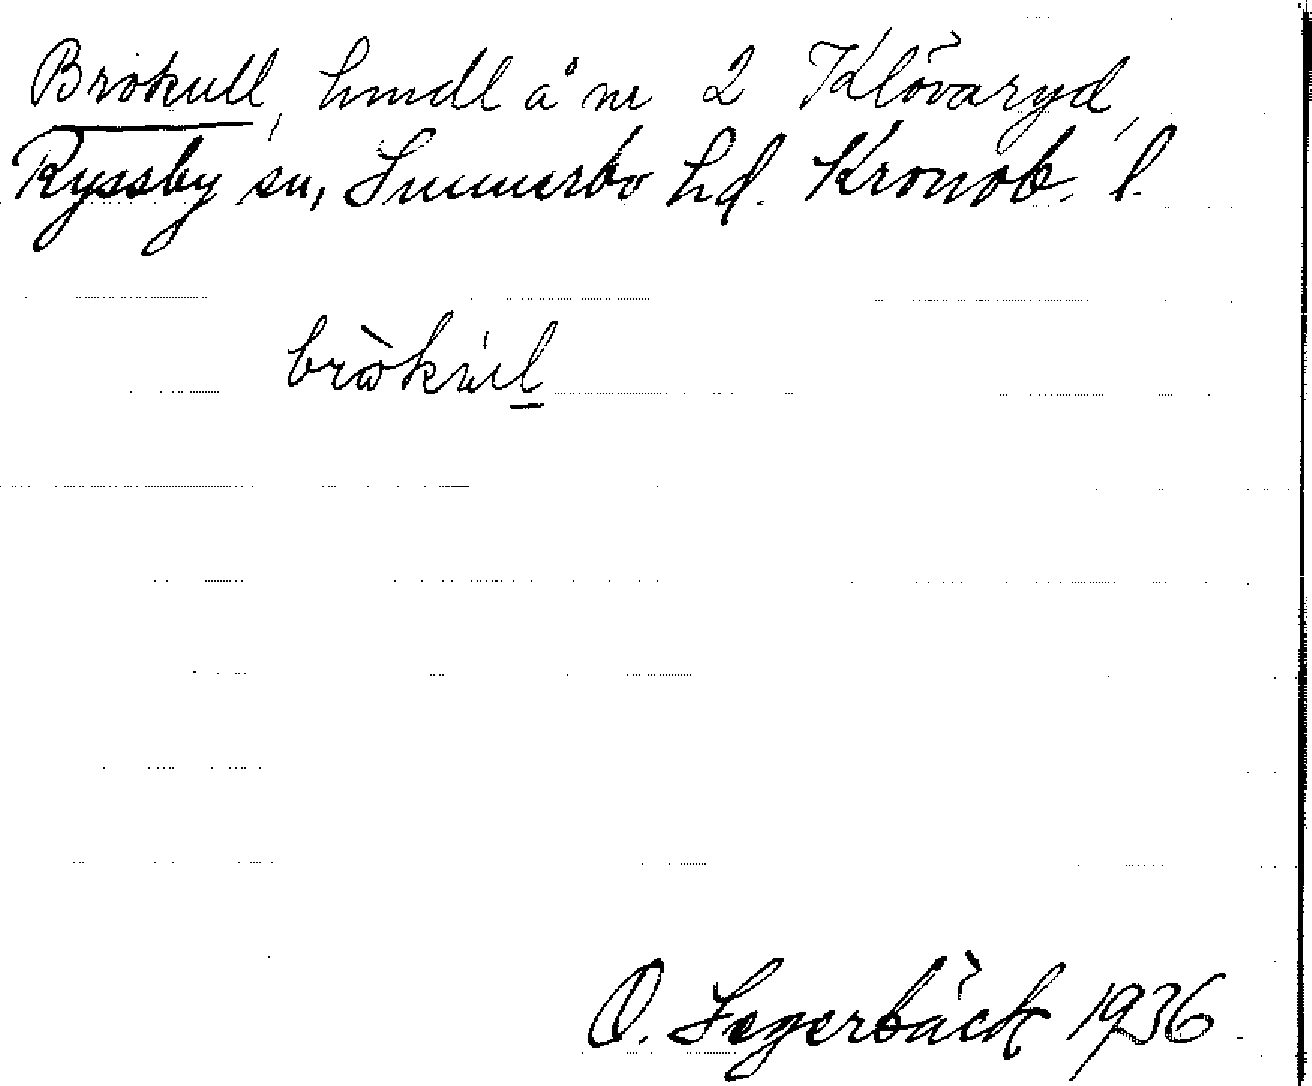 Brokull, hmdl å nr 2 Klövaryd,
Ryssby sn, Sunnerbo hd. Kronob. l.
bròkúl
O. Segerbäck 1936